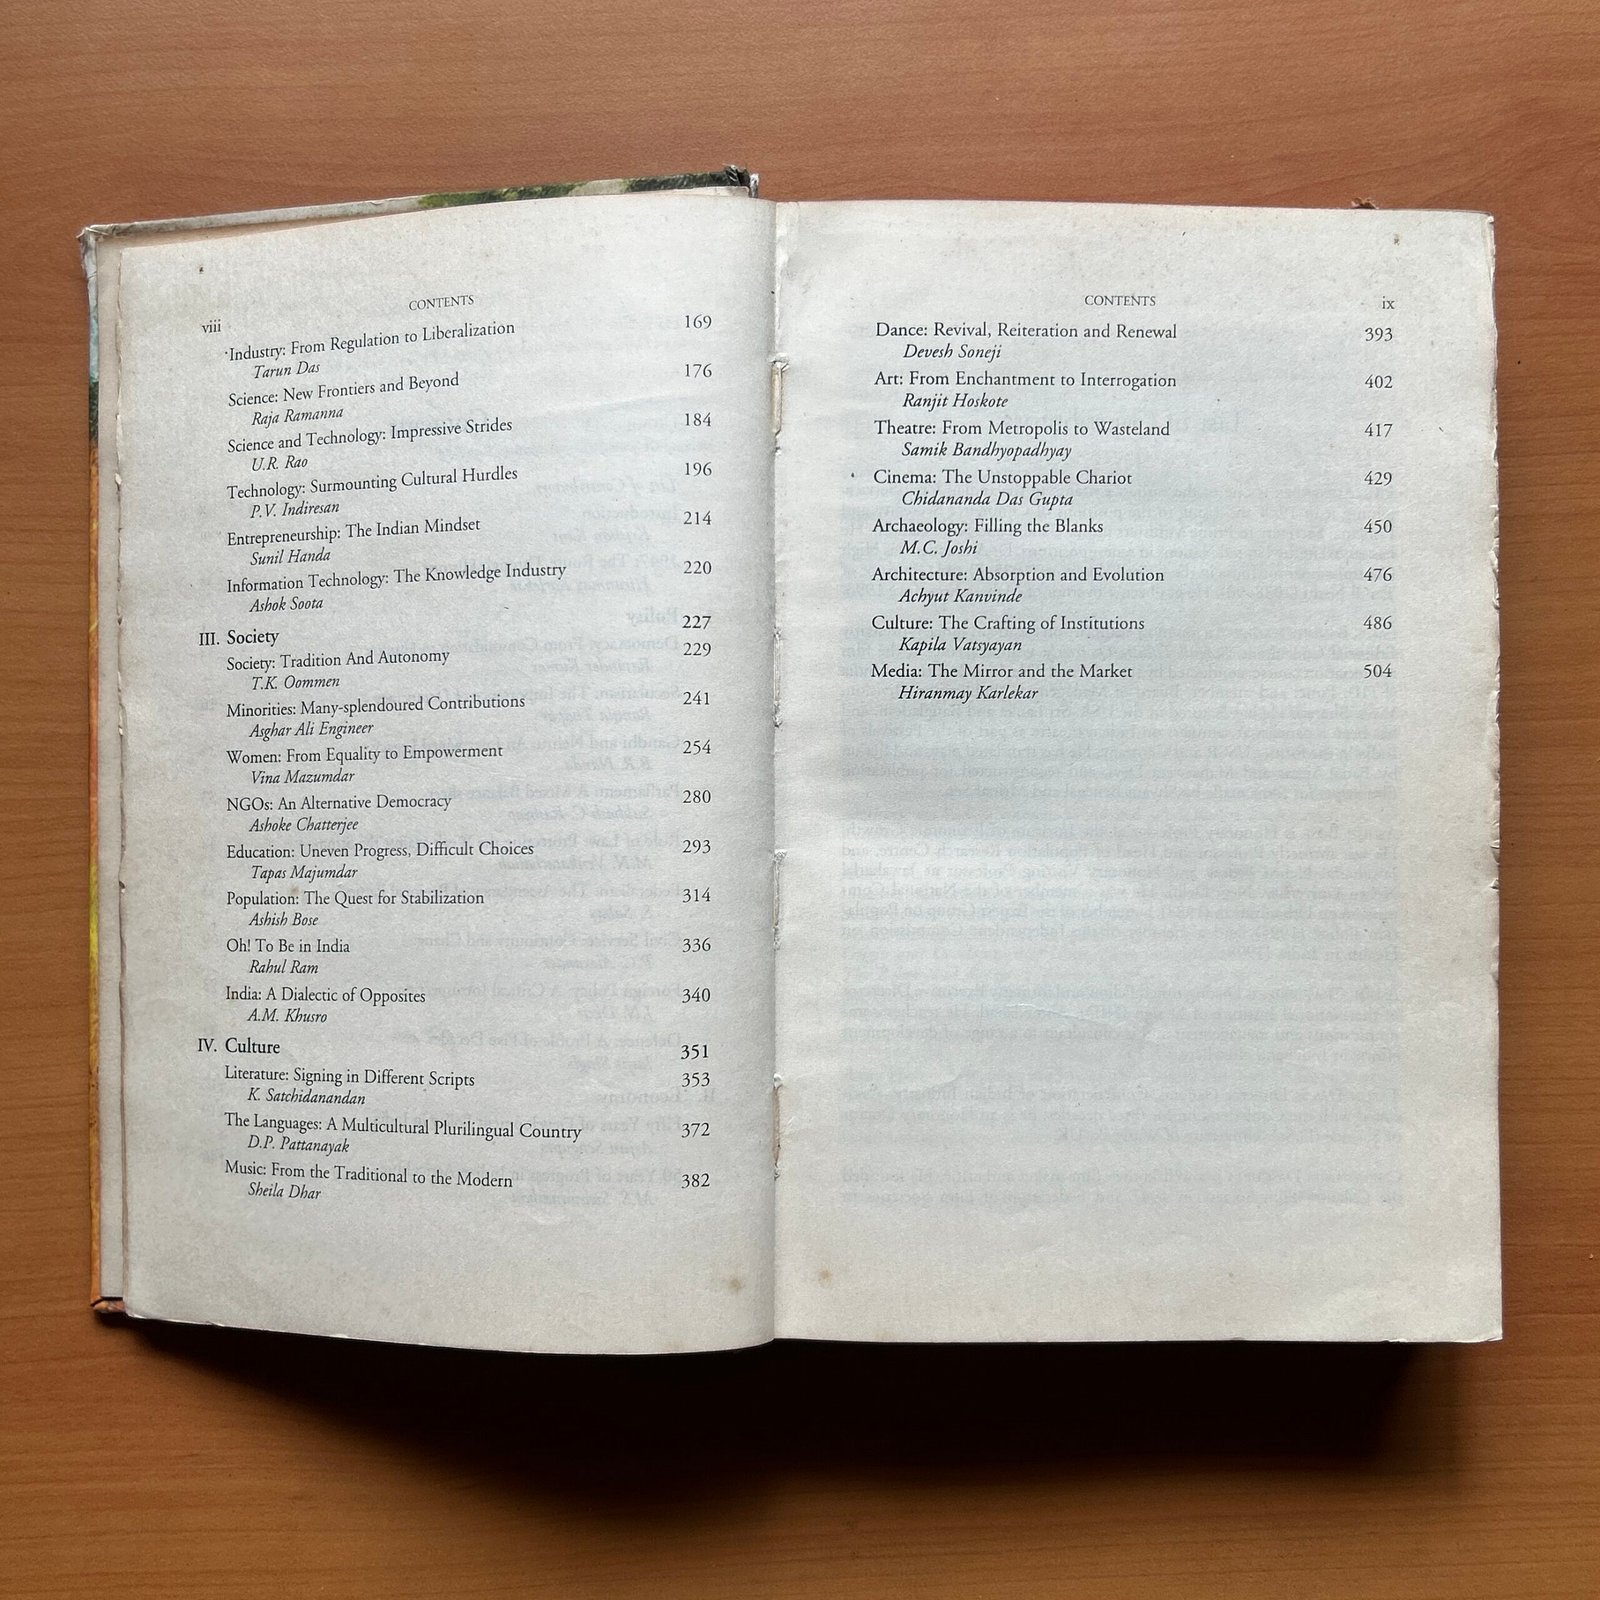 viii
CONTENTS
Industry: From Regulation to Liberalization 169
Tarun Das
Science: New Frontiers and Beyond 176
Raja Ramanna
Science and Technology: Impressive Strides 184
U.R. Rao
Technology: Surmounting Cultural Hurdles 196
P.V. Indiresan
Entrepreneurship: The Indian Mindset 214
Sunil Handa
Information Technology: The Knowledge Industry 220
Ashok Soota
III. Society 227
Society: Tradition And Autonomy 229
T.K. Oommen
Minorities: Many-splendoured Contributions 241
Asghar Ali Engineer
Women: From Equality to Empowerment 254
Vina Mazumdar
NGOs: An Alternative Democracy 280
Ashoke Chatterjee
Education: Uneven Progress, Difficult Choices 293
Tapas Majumdar
Population: The Quest for Stabilization 314
Ashish Bose
Oh! To Be in India 336
Rahul Ram
India: A Dialectic of Opposites 340
A.M. Khusro
IV. Culture 351
Literature: Signing in Different Scripts 353
K. Satchidanandan
The Languages: A Multicultural Plurilingual Country 372
D.P. Pattanayak
Music: From the Traditional to the Modern 382
Sheila Dhar
CONTENTS ix
Dance: Revival, Reiteration and Renewal 393
Devesh Soneji
Art: From Enchantment to Interrogation 402
Ranjit Hoskote
Theatre: From Metropolis to Wasteland 417
Samik Bandhyopadhyay
Cinema: The Unstoppable Chariot 429
Chidananda Das Gupta
Archaeology: Filling the Blanks 450
M.C. Joshi
Architecture: Absorption and Evolution 476
Achyut Kanvinde
Culture: The Crafting of Institutions 486
Kapila Vatsyayan
Media: The Mirror and the Market 504
Hiranmay Karlekar